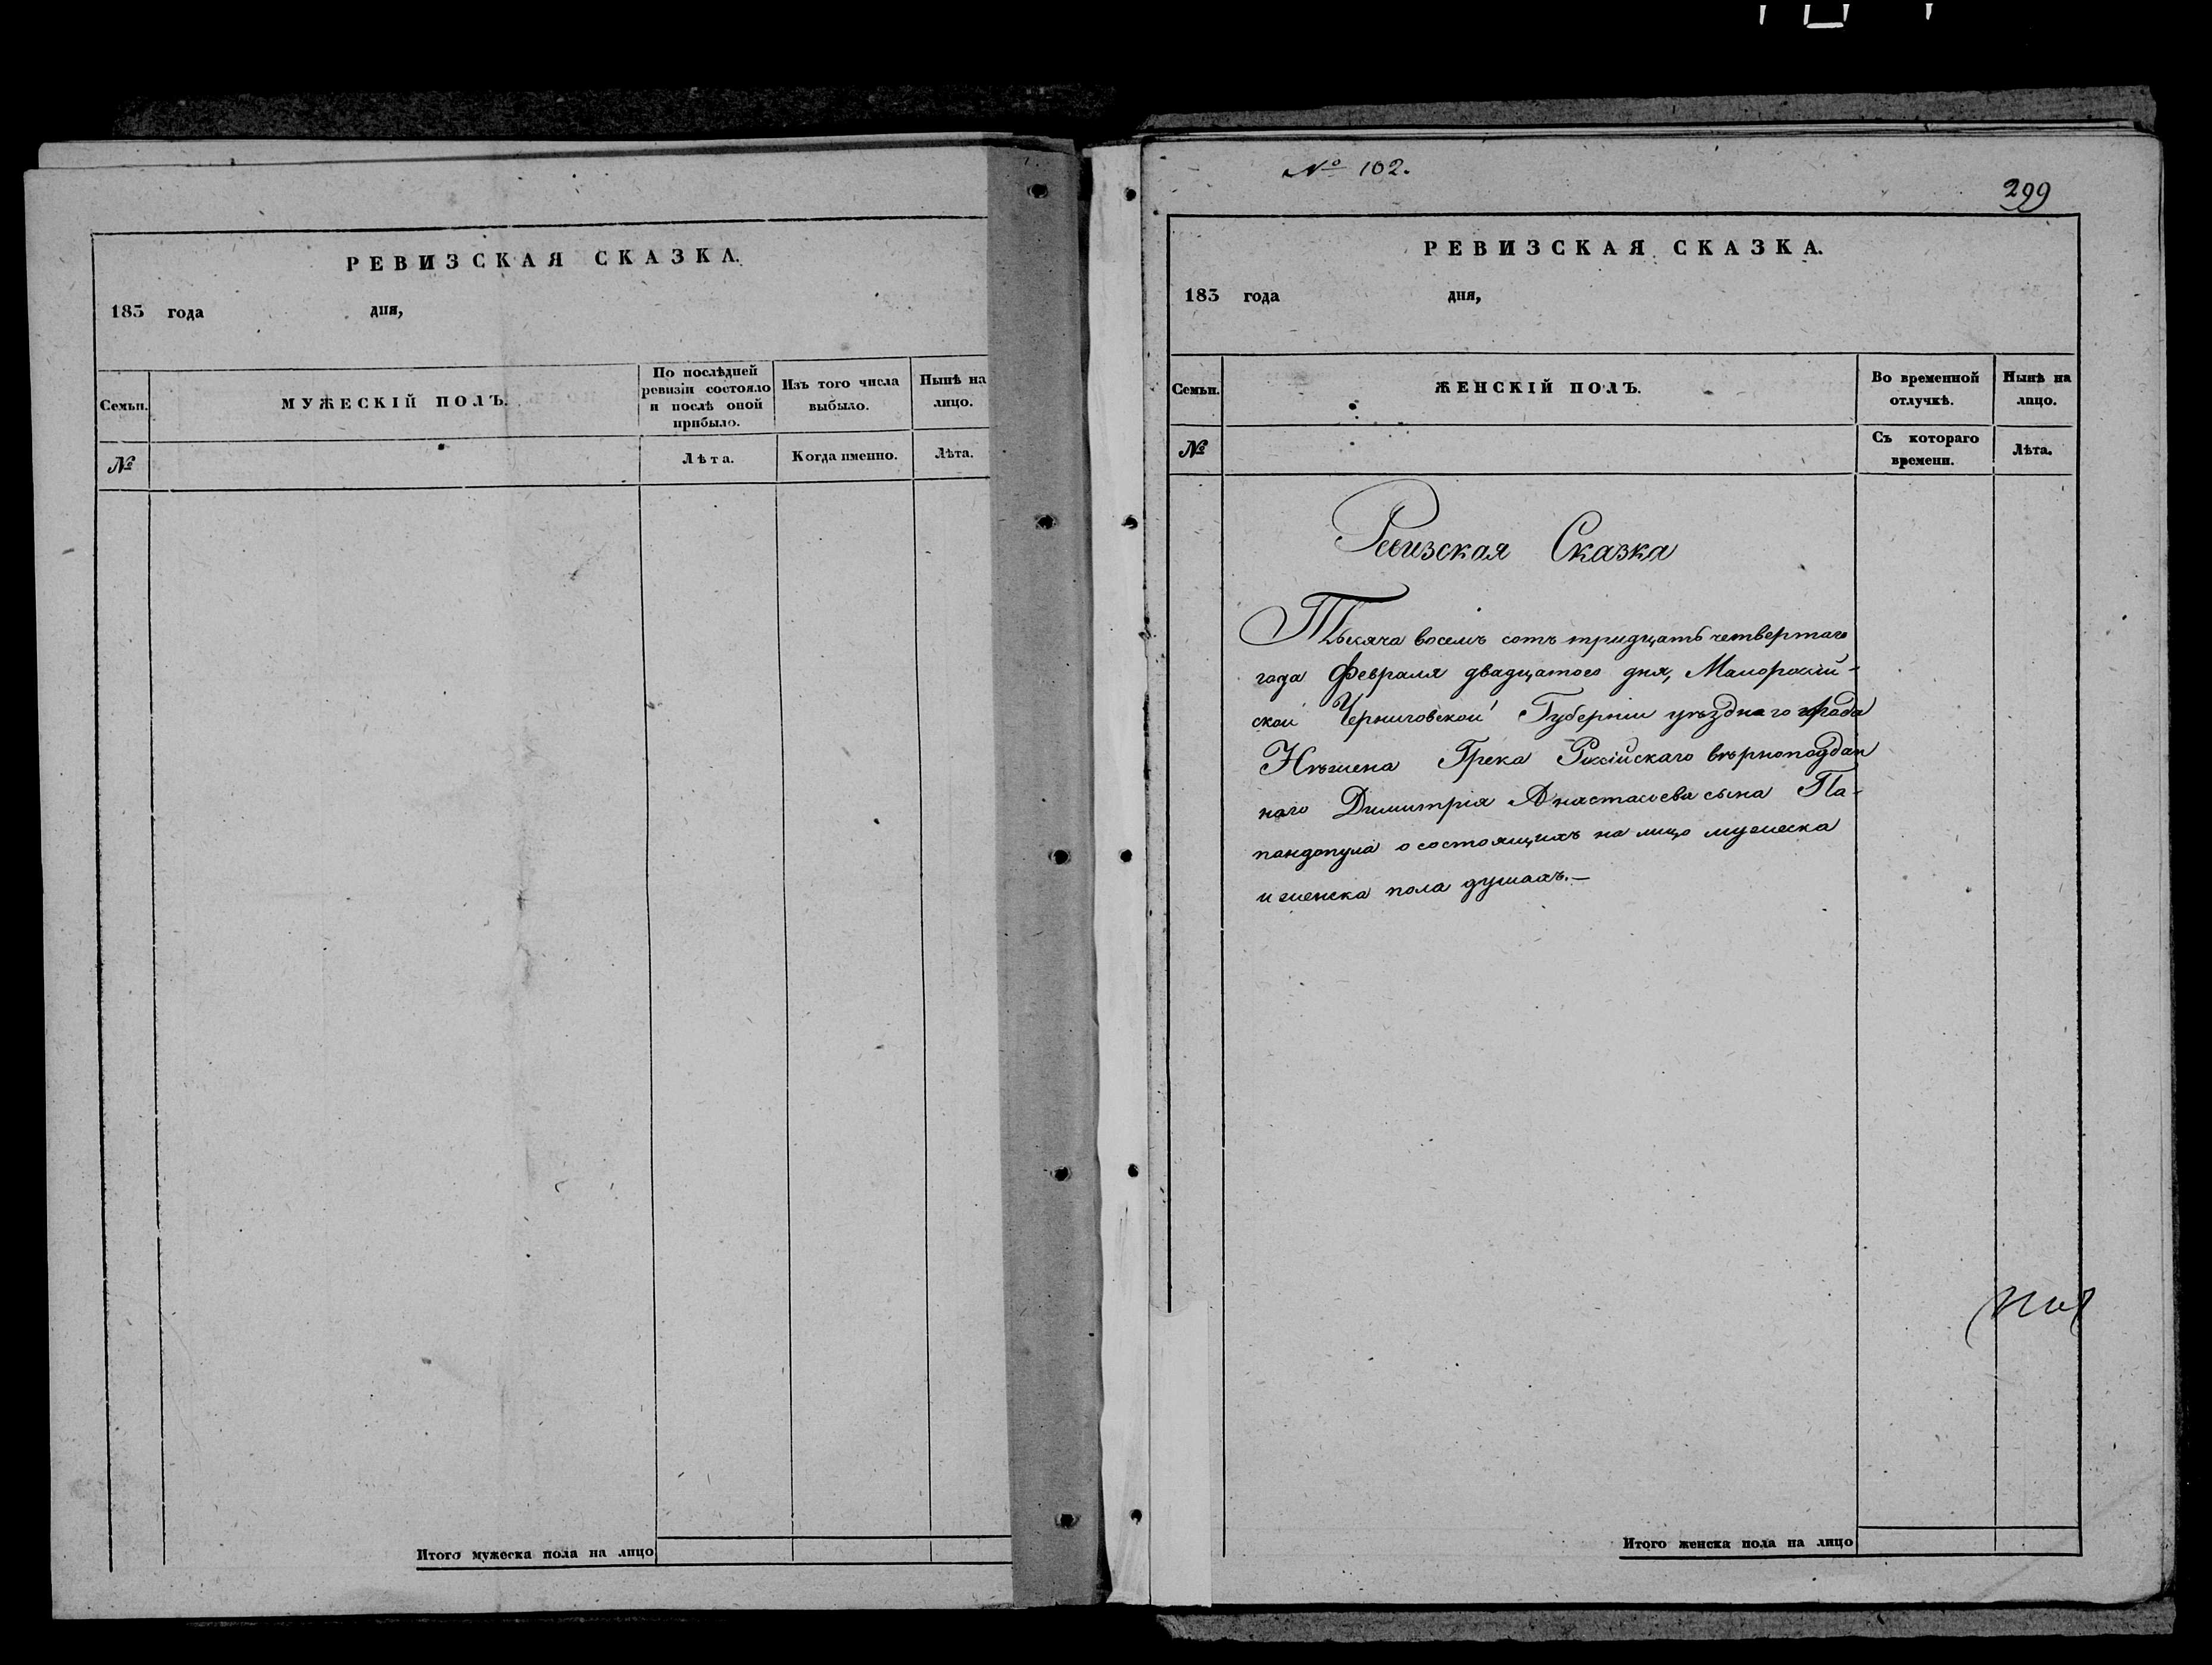 РЕВИЗСКАЯ СКАЗКА.
183 года дня,
Семьи.
МУЖЕСКІЙ ПОЛЪ.
По послѣдней
ревизіи состояло
и послѣ оной
прибыло.
Изъ того числа
выбыло.
Нынѣ на
лицо.
№
Лѣта.
Когда именно.
Лѣта.
Итого мужеска пола на лицо
№ 102.
299
РЕВИЗСКАЯ СКАЗКА.
183 года дня,
Семьи.
ЖЕНСКІЙ ПОЛЪ.
Во временной
отлучкѣ.
Нынѣ на
лицо.
№
Съ котораго
времени.
Лѣта.
Ревизская Сказка
Тысяча восемъ сотъ тридцать четвертаго
года Февраля двадцатого дня, Малоросій-
ской Черниговской Губерніи уѣзднаго города
Нѣжена Грека Російскаго вѣрноподдан
наго Димитрія Анастасиева сына Па-
пандопула о состоящихъ на лицо мужеска
и женска пола душахъ.—
Итого женска пола на лицо